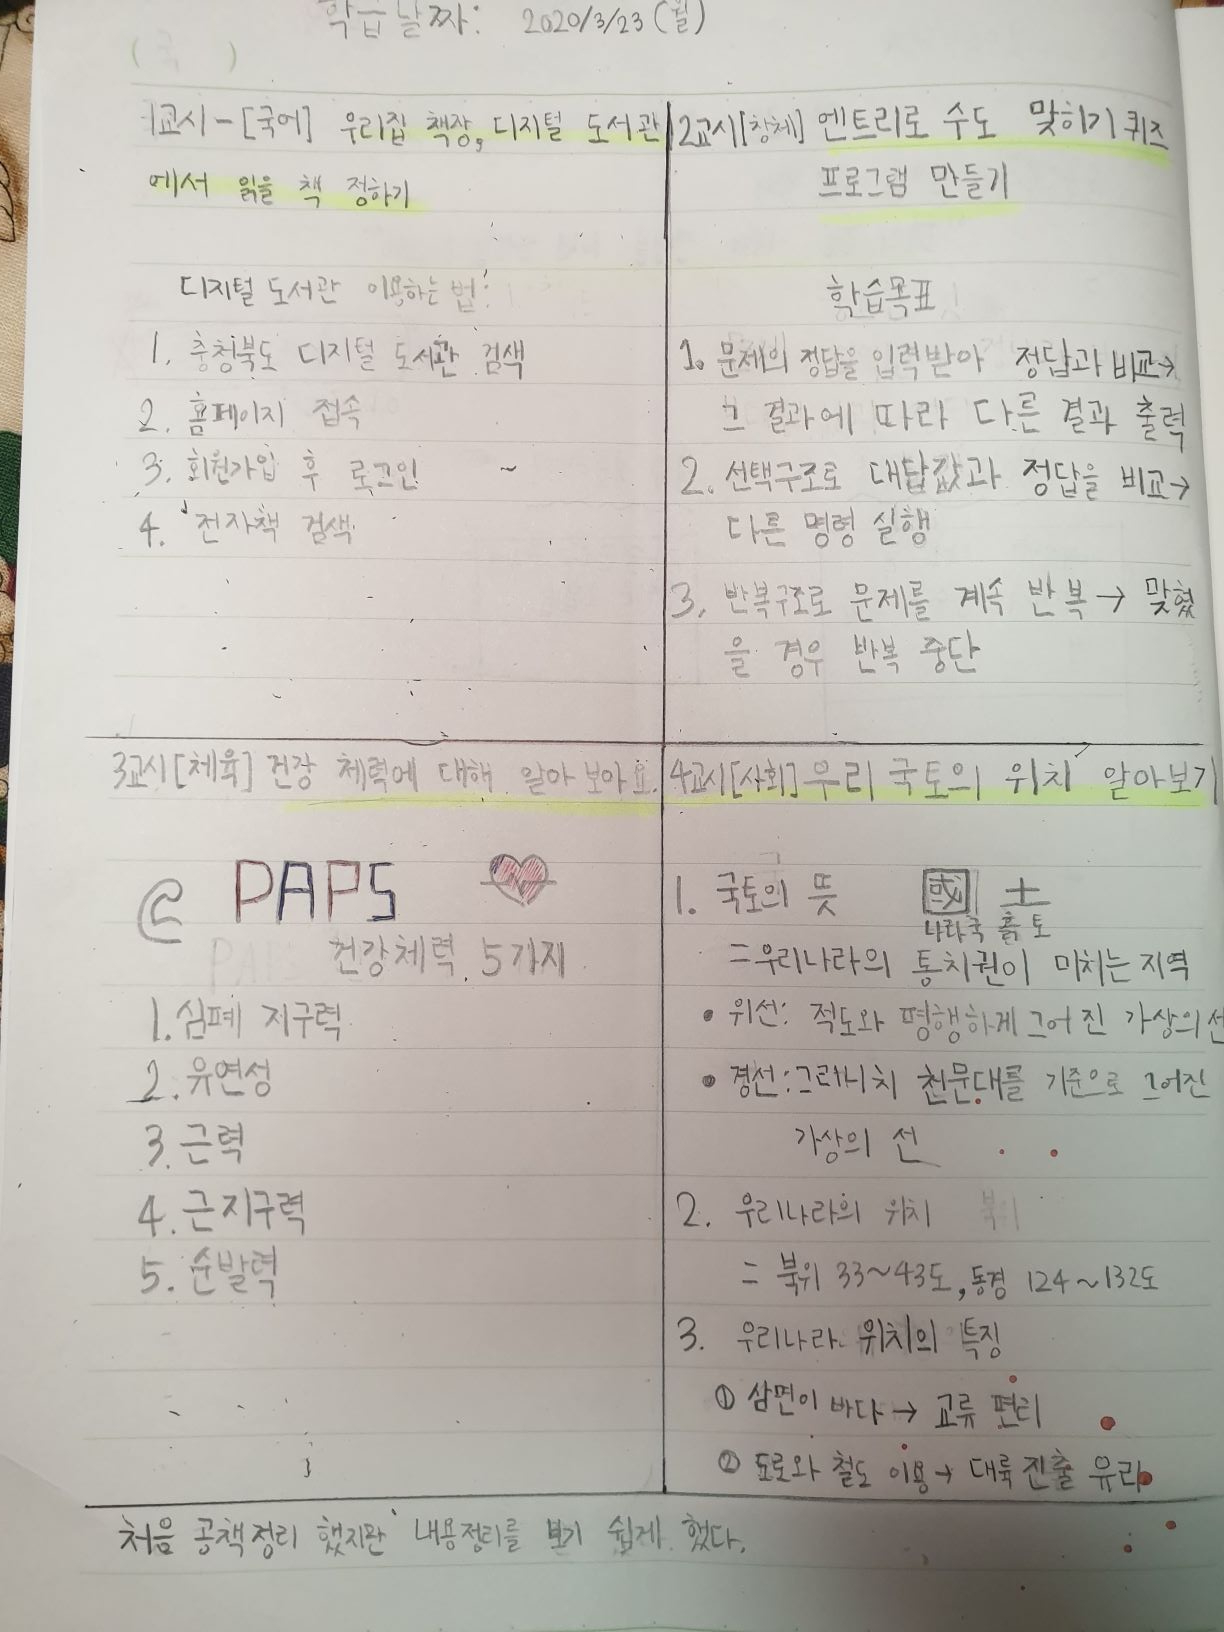 학습날짜: 2020/3/23(월)
1교시-[국어] 우리집 책장, 디지털 도서관
에서 읽을 책 정하기
디지털 도서관 이용하는 법:
1. 충청북도 디지털 도서관 검색
2. 홈페이지 접속
3. 회원가입 후 로그인 ~
4. 전자책 검색
2교시[창체] 엔트리로 수도 맞히기 퀴즈
프로그램 만들기
학습목표
1. 문제의 정답을 입력받아 정답과 비교→
그 결과에 따라 다른 결과 출력
2. 선택구조로 대답값과 정답을 비교→
다른 명령 실행
3. 반복구조로 문제를 계속 반복→ 맞혔
을 경우 반복 중단
3교시[체육] 건강 체력에 대해 알아보아요.
PAPS
건강체력 5가지
1. 심폐 지구력
2. 유연성
3. 근력
4. 근지구력
5. 순발력
4교시[사회] 우리 국토의 위치 알아보기
1. 국토의 뜻 國 土
나라국 흙 토
=우리나라의 통치권이 미치는 지역
• 위선: 적도와 평행하게 그어진 가상의 선
• 경선: 그리니치 천문대를 기준으로 그어진
가상의 선
2. 우리나라의 위치 북위
= 북위 33~43도, 동경 124~132도
3. 우리나라 위치의 특징
① 삼면이 바다→ 교류 편리
② 도로와 철도 이용→ 대륙 진출 유리
처음 공책정리 했지만 내용정리를 보기 쉽게 했다.